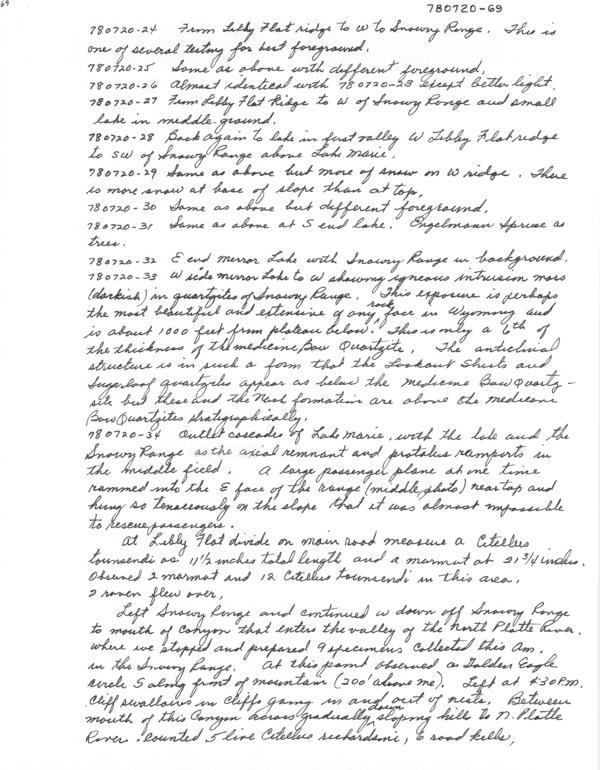 69
780720-69
780720-24 From Libby Flat ridge to W to Snowy Range. This is
one of several testing for best foreground.
780720-25 Same as above with different foreground.
780720-26 Almost identical with 780720-23 except better light.
780720-27 From Libby Flat Ridge to W of Snowy Range and small
lake in middle ground.
780720-28 Back again to lake in first valley W Libby Flat ridge
to SW of Snowy Range above Lake Marie.
780720-29 Same as above but more of snow on W ridge. There
is more snow at base of slope than at top.
780720-30 Same as above but different foreground.
780720-31 Same as above at S end lake. Engelmann Spruce as
trees.
780720-32 E end mirror Lake with Snowy Range in background.
780720-33 W side mirror Lake to W showing igneous intrusion mass
(darkish) in quartzites of Snowy Range. This exposure is perhaps
the most beautiful and extensive of any rock face in Wyoming and
is about 1000 feet from plateau below. This is only a 6th of
the thickness of the medicine Bow Quartzite. The anticlinal
structure is in such a form that the Lookout Shists and
Sugarloaf quartzites appear as below the medicine Bow Quartz-
site but these and the Nash formation are above the medicine
Bow Quartzites stratigraphically.
780720-34 Outlet cascades of Lake Marie, with the lake and the
Snowy Range as the axial remnant and protalus ramports in
the middle field. A large passenger plane at one time
rammed into the E face of the range (middle photo) near top and
hung so tenaceously on the slope that it was almost impossible
to rescue passengers.
At Libby Flat divide on main road measure a Citellus
townsendi as 11 1/2 inches total length and a marmot at 21 3/4 inches.
Observed 2 marmot and 12 Citellus townsendi in this area.
2 raven flew over.
Left Snowy Range and continued W down off Snowy Range
to mouth of Canyon that enters the valley of the North Platte River.
where we stopped and prepared 9 specimens collected this Am.
in the Snowy Range. At this point observed a Golden Eagle
circle S along front of mountain (200' above me). Left at 4:30 P.M.
Cliff swallows in cliffs going in and out of nests. Between
mouth of this Canyon across gradually down sloping hills to N. Platte
River. Counted 5 live Citellus richardsoni, 6 road kills,